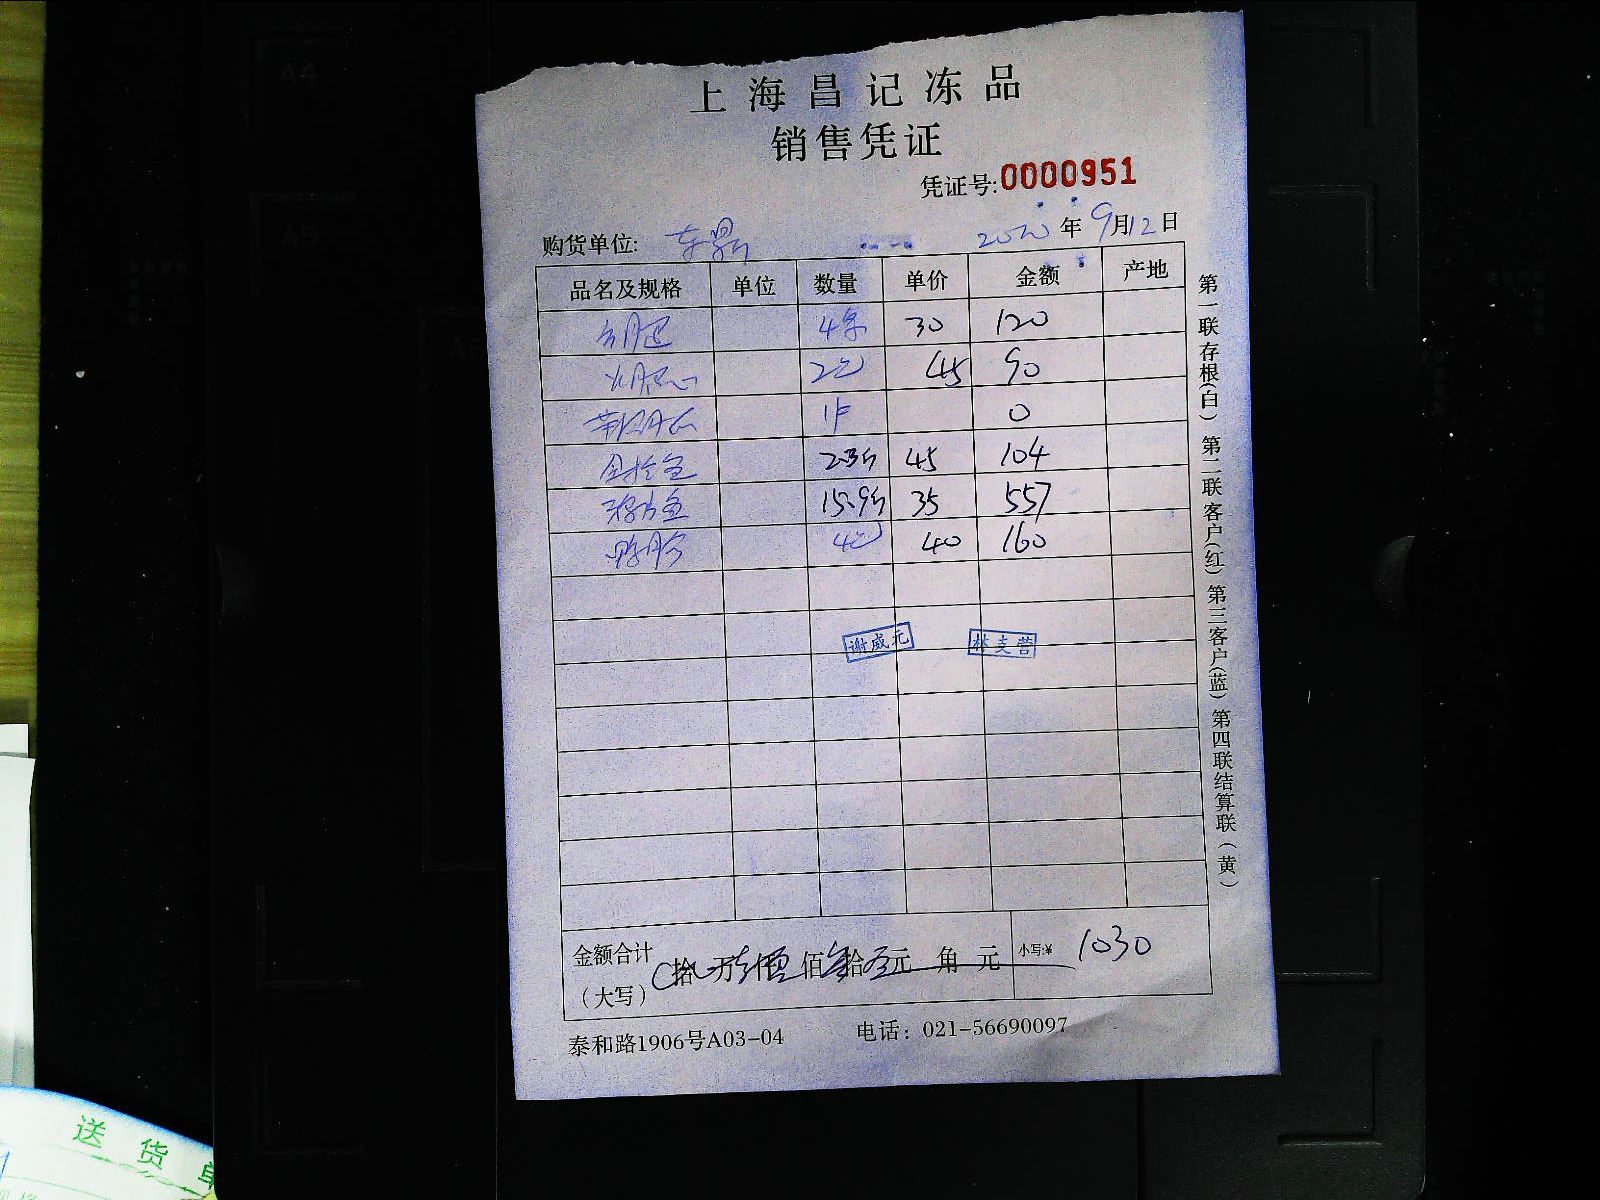 A4
A5
上海昌记冻品
销售凭证
凭证号:0000951
购货单位: 2020年9月12日
品名及规格 单位 数量 单价 金额 产地
4条 30 120
2包 45 90
1件 0
2.3斤 45 104
15.9斤 35 557
4包 40 160
谢威元 林支营
金额合计 拾 万 仟 佰 拾 元 角 元 小写:¥ 1030
（大写）
泰和路1906号A03-04 电话：021-56690097
第一联存根(白) 第二联客户(红) 第三客户(蓝) 第四联结算联(黄)
送货单